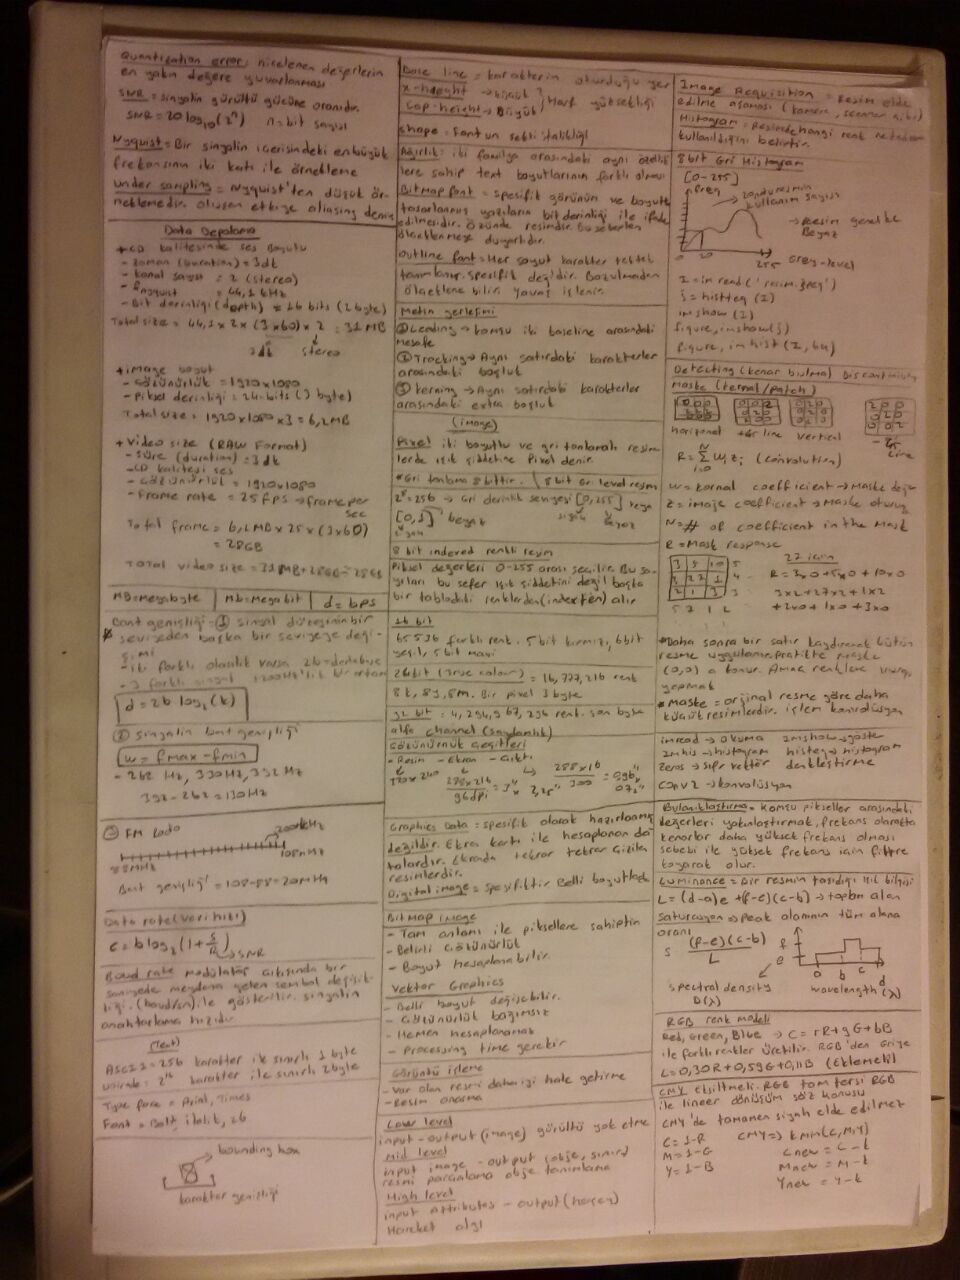 Quantization error: nicelenen değerlerin
en yakın değere yuvarlanması
SNR = sinyalin gürültü gücüne oranıdır.
SNR = 20 log₁₀(2ⁿ) n = bit sayısı
Nyquist = Bir sinyalin içerisindeki en büyük
frekansının iki katı ile örnekleme
under sampling = Nyquist'ten düşük ör-
neklemedir. oluşan etkiye aliasing denir
Data Depolama
+ CD kalitesinde ses Boyutu
- zaman (duration) = 3dk
- kanal sayısı = 2 (stereo)
- fnyquist = 44,1 kHz
- Bit derinliği (depth) = 16 bits (2 byte)
Total size = 44,1 x 2 x (3x60) x 2 = 31 MB
3dk stereo
+ image boyut
- çözünürlük = 1920x1080
- Piksel derinliği = 24-bits (3 byte)
Total size = 1920x1080 x 3 = 6,2MB
+ video size (RAW Format)
- süre (duration) = 3dk
- CD kalitesi ses
- çözünürlük = 1920x1080
- Frame rate = 25 fps → frame per
sec
Total frame = 6,2MB x 25 x (3x60)
= 28GB
Total video size = 31MB + 28GB = 28GB
MB = Megabyte | Mb = Megabit | d = bps
Bant genişliği = ① sinyal düzeyinin bir
seviyeden başka bir seviyeye deği-
şimi
d = 2b log₂(k)
② sinyalin bant genişliği
w = fmax - fmin
- 262 Hz, 330Hz, 392 Hz
392 - 262 = 130Hz
③ FM Radio
200kHz
88MHz 108MHz
Bant genişliği = 108-88 = 20MHz
Data rate (veri hızı)
c = b log₂(1 + S/N) → SNR
Baud rate modülatör çıkışında bir
saniyede meydana gelen sembol değişik-
liği. (baud/sn) ile gösterilir. sinyalin
anahtarlama hızıdır
(Text)
ASCII = 256 karakter ile sınırlı 1 byte
unicode = 2¹⁶ karakter ile sınırlı 2byte
Type face = Arial, Times
Font = Bold, italik, 26
bounding box
karakter genişliği
Base line = karakterin oturduğu yer
x-height → küçük
Cap-height → Büyük } Harf yüksekliği
shape = Fontun şekli italikliği
Ağırlık: iki familya arasındaki aynı özellik
lere sahip text boyutlarının farklı olması
BitMap font = spesifik görünün ve boyutu
tasarlanmış yazıların bit derinliği ile ifade
edilmesidir. Özünde resimdir. Bu sebepten
ölçeklenmeye duyarlıdır.
Outline font = Her soyut karakter tek tek
tanımlanır. spesifik değildir. Bozulmadan
ölçeklenebilir. Yavaş işlenir.
Metin yerleşimi
① Leading → komşu iki baseline arasındaki
mesafe
② Tracking → Aynı satırdaki karakterler
arasındaki boşluk
③ kerning → Aynı satırdaki karakterler
arasındaki extra boşluk
(image)
Pixel iki boyutlu ve gri tonlamalı resim
lerde ışık şiddetine Pixel denir.
* Gri tonlama 8 bittir. 8 bit Gri level resm
2⁸ = 256 → Gri derinlik seviyesi [0,255] veya
siyah beyaz
[0,1] → beyaz
siyah
8 bit indexed renkli resim
Piksel değerleri 0-255 arası seçilir. Bu sa-
yıları bu sefer ışık şiddetini değil başka
bir tablodaki renklerden (indexten) alır
16 bit
65536 farklı renk. 5 bit kırmızı, 6bit
yeşil, 5 bit mavi
24bit (True colour) = 16,777,216 renk
8k, 8y, 8m. Bir pixel 3 byte
32 bit = 4,294,967,296 renk. son byte
alfa channel (saydamlık)
Çözünürlük Çeşitleri
- Resim - Ekran - Çıktı
Graphics Data = spesifik olarak hazırlanmış
değildir. Ekran kartı ile hesaplanan da-
talardır. Ekranda tekrar tekrar çizilen
resimlerdir.
Digital image = spesifiktir Belli boyutlada
BitMap image
- Tam anlamı ile piksellere sahiptir
- Belirli çözünürlük
- Boyut hesaplanabilir.
Vektor Graphics
- Belli boyut değişebilir.
- Çözünürlük bağımsız
- Hemen hesaplanamaz
- Processing time gerekir
Görüntü işleme
- var olan resmi daha iyi hale getirme
- Resim onarma
Lower level
input - output (image) gürültü yok etme
Mid level
input image - output (obje, sınır)
resmi parçalama obje tanımlama
High level
input Attributes - output (
Hareket algı
Image Acquisition = Resim elde
edilme aşaması (kamera, scanner gibi)
Histogram = Resimde hangi renk ne kadar
kullanıldığını belirtir.
8bit Gri Histogram
[0-255]
freq
kullanım sayısı
→ Resim genelde
Beyaz
0 20 255 Grey-level
I = imread('resim.jpeg')
j = histeq (I)
imshow (I)
figure, imshow(j)
figure, imhist (I, 64)
Detecting (kenar bulma) Discontinuity
Maske (kernal/patch)
horizonal +45 line vertical -45 line
R = Σ wᵢ zᵢ (convolution)
N
i=0
w = kernal coefficient → Maske değer
z = image coefficient → Maske
N = # of coefficient in the Mask
R = Mask response
3 5 10 5
2 27 1 4
2 1 3 3
5 2 1 2
27 için
R = 3x0 + 5x0 + 10x0
3x2 + 27x2 + 1x2
+ 2x0 + 1x0 + 3x0
* Daha sonra bir satır kaydırarak bütün
resme uygulanır. pratikte maske
(0,0) a konur. Amaç renklere vurgu
yapmak
* Maske = orjinal resme göre daha
küçük resimlerdir. işlem konvolüsyon
imread → okuma imshow → göster
imhis → histogram histeq → histogram
zeros → sıfır vektör denkleştirme
conv2 → konvolüsyon
Bulanıklaştırma = komşu pikseller arasındaki
değerleri yakınlaştırmak, frekans olarakta
kenarlar daha yüksek frekans olması
sebebi ile yüksek frekans için filtre
koyarak olur.
Luminance = Bir resmin taşıdığı ışık bilgisi
L = (d-a)e + (f-e)(c-b) → toplam alan
saturasyon → peak alanının tüm alana
oranı
S (f-e)(c-b)
L
f
e
a b c d
spectral density
D(λ)
wavelength (λ)
RGB renk modeli
Red, Green, Blue → C = rR + gG + bB
ile farklı renkler üretilir. RGB'den Griye
L = 0,30R + 0,59G + 0,11B (Eklemeli)
CMY Eksiltmeli. RGB tam tersi RGB
ile lineer dönüşüm söz konusu
CMY'de tamamen siyah elde edilmez
C = 1-R CMY ⇒ k min(C,M,Y)
M = 1-G Cnew = C-k
Y = 1-B Mnew = M-k
Ynew = Y-k